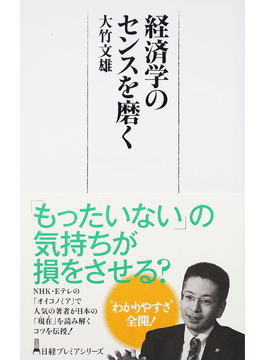 経済学の
センスを磨く
大竹文雄
「もったいない」の
気持ちが
損をさせる?
NHK・Eテレの
「オイコノミア」で
人気の著者が日本の
「現在」を読み解く
コツを伝授!
"わかりやすさ"
全開!
日経プレミアシリーズ